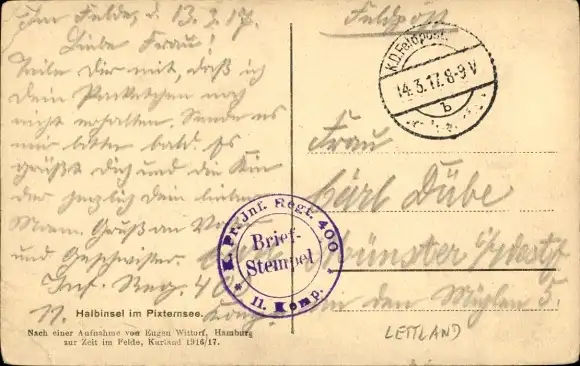 Im Felde, d. 13.3.17.
Liebe Frau!
Teile Dir mit, daß ich
Dein Packetchen noch
nicht erhalten. Sende es
mir bitte bald. Es
grüßt Dich und die Kin
der herzlich Dein lieber
Mann. Gruß an
und Geschwister.
Inf. Reg. 400
11. Komp.
Halbinsel im Pixternsee.
Nach einer Aufnahme von Eugen Witturf, Hamburg
zur Zeit im Felde, Kurland 1916/17.
Feldpost
K.D. Feldpost
14.3.17. 8-9 V
b
Frau
Carl Dübe
Münster i/Westf
An den Mühlen 5.
K. Pr. Inf. Regt. 400
Brief-
Stempel
* 11. Komp.
LETTLAND